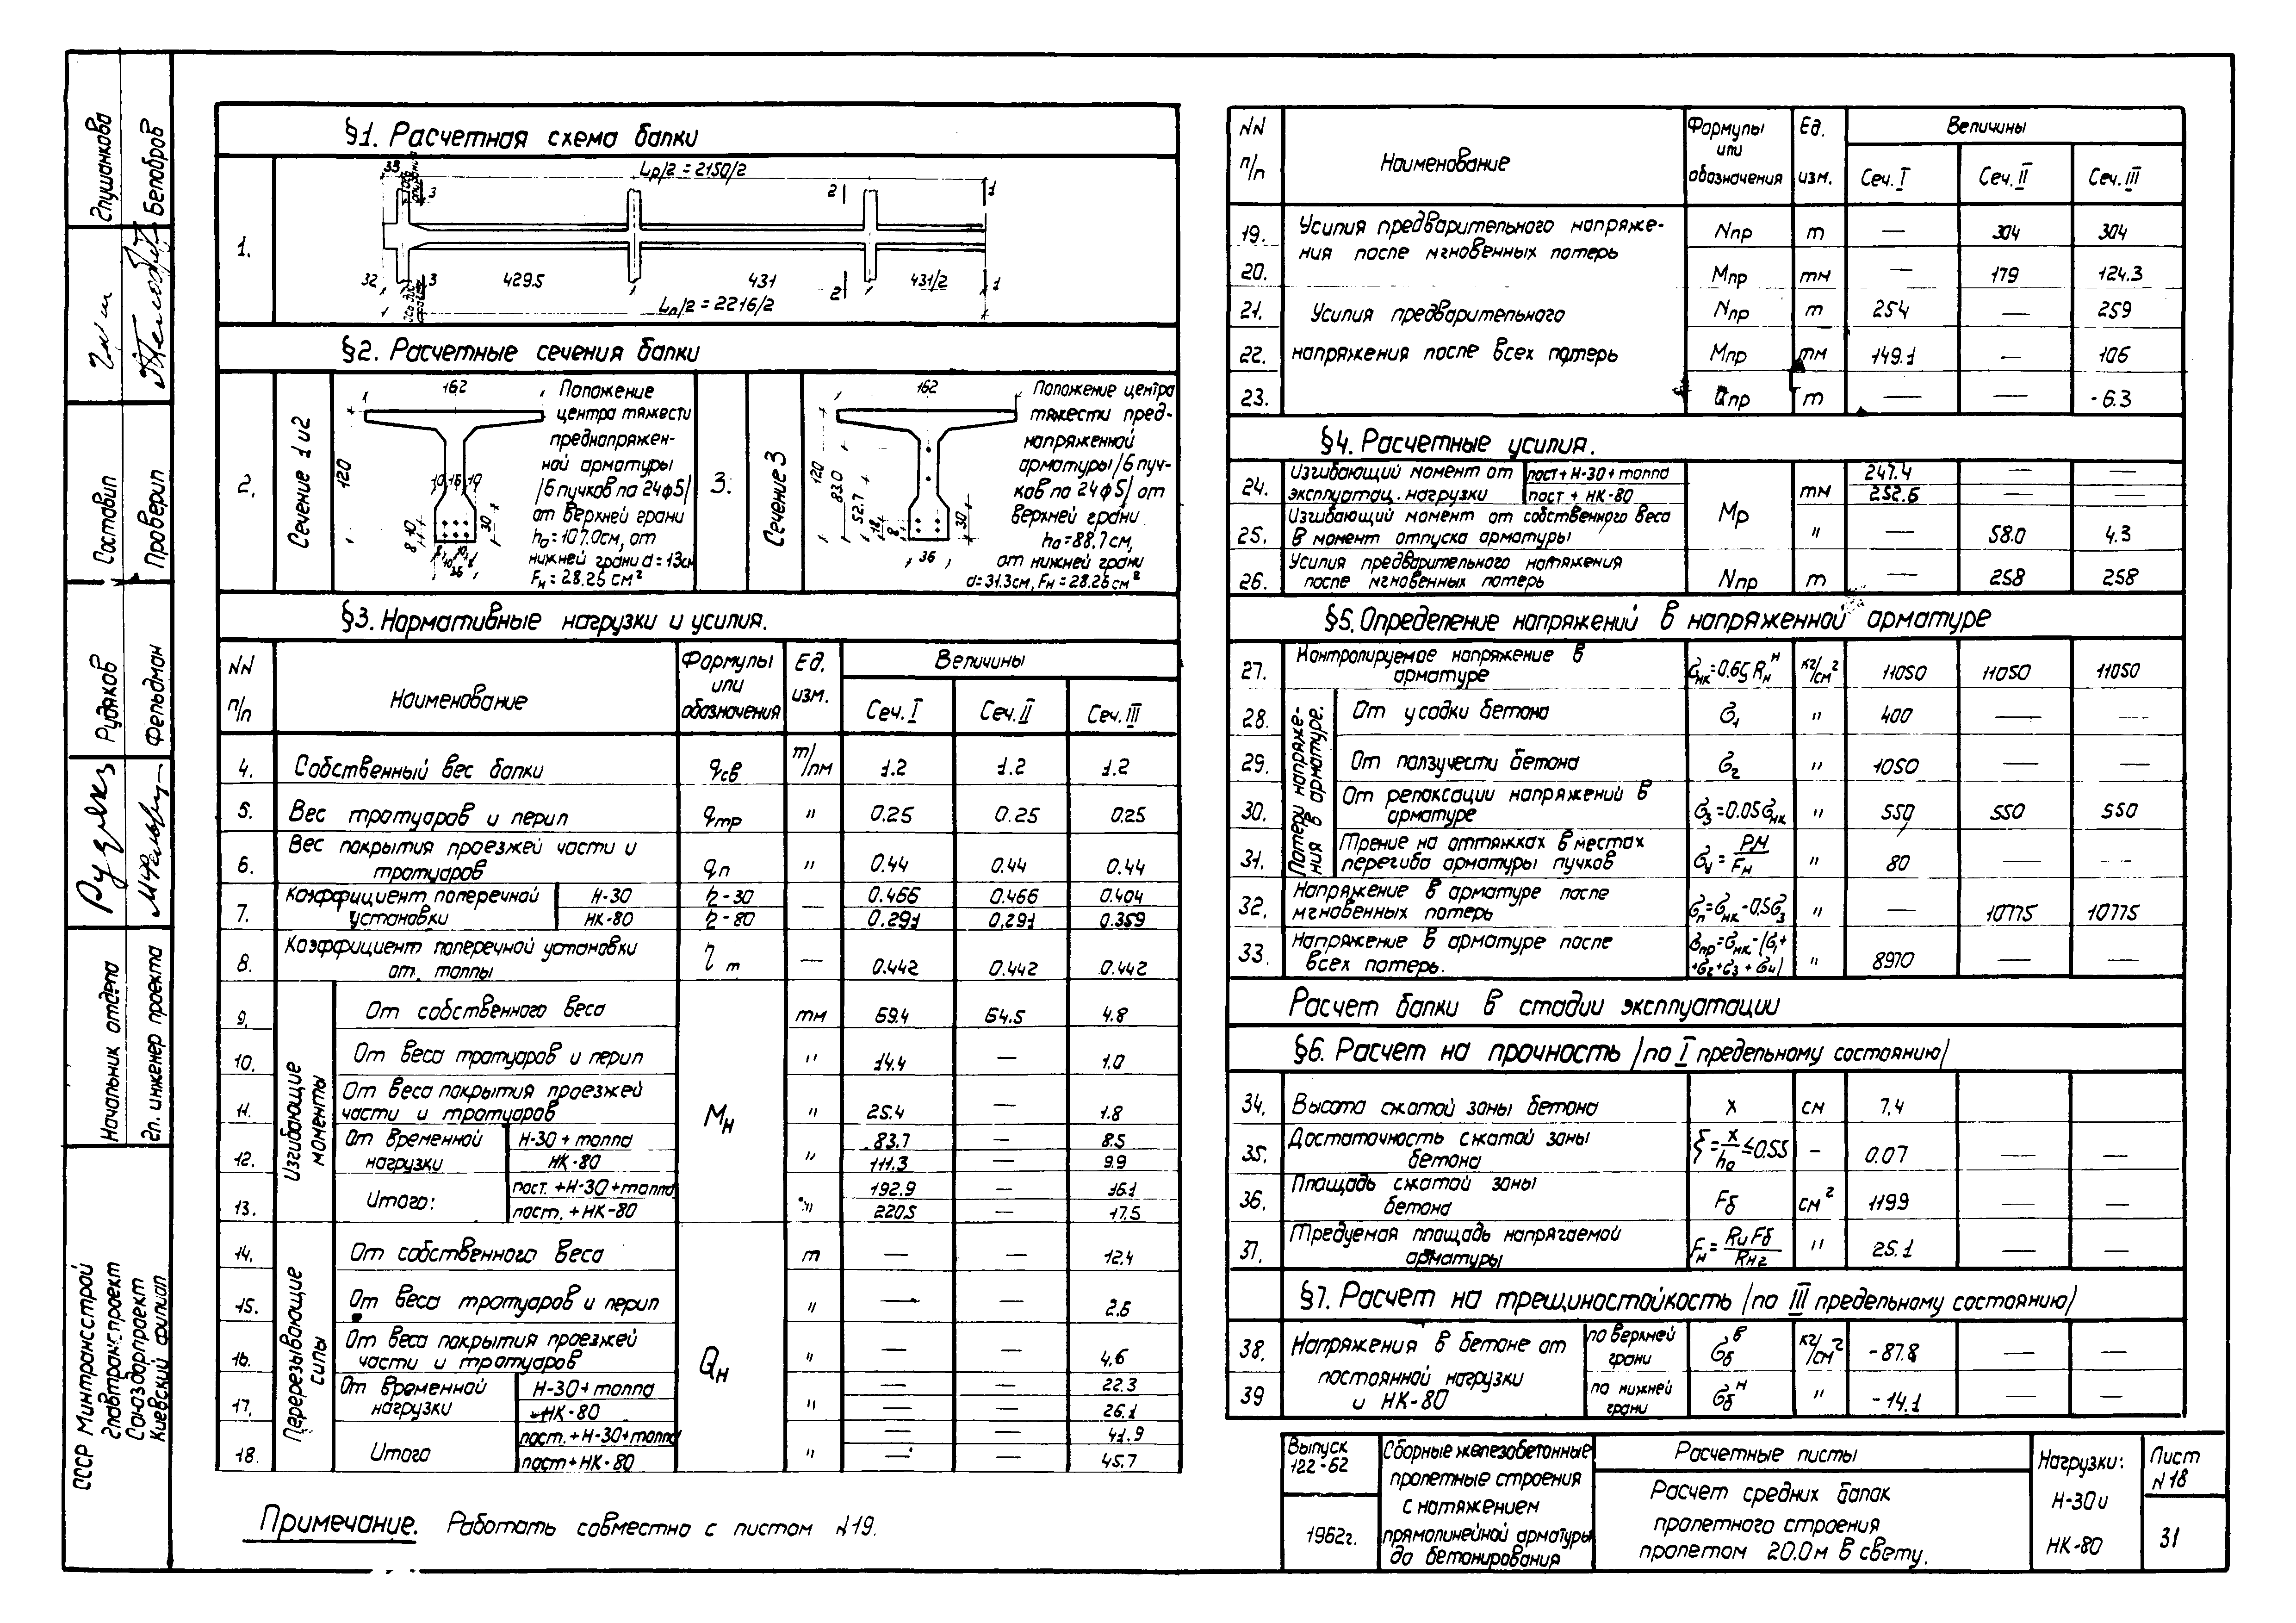 §1. Расчетная схема балки
1.
33
Lp/2 = 2150/2
3
2
1
32
3
429.5
431
2
431/2
1
Lп/2 = 2216/2
§2. Расчетные сечения балки
2.
Сечение 1 и 2
162
120
10 16 10
8 10
30
36
Положение
центра тяжести
преднапряжен-
ной арматуры
/6 пучков по 24ф5/
от верхней грани
h₀=107.0см, от
нижней грани d=13см
Fн=28.26 см²
3.
Сечение 3
162
120
83.0
52.7
30
36
Положение центра
тяжести пред-
напряженной
арматуры /6 пуч-
ков по 24ф5/ от
верхней грани
h₀=88.7см,
от нижней грани
d=31.3см, Fн=28.26см²
§3. Нормативные нагрузки и усилия.
NN п/п | Наименование | Формулы или обозначения | Ед. изм. | Величины
Сеч. I | Сеч. II | Сеч. III
4. Собственный вес балки qсв т/пм 1.2 1.2 1.2
5. Вес тротуаров и перил qтр " 0.25 0.25 0.25
6. Вес покрытия проезжей части и тротуаров qп " 0.44 0.44 0.44
7. Коэффициент поперечной установки Н-30 η-30 — 0.466 0.466 0.404
НК-80 η-80 0.291 0.291 0.359
8. Коэффициент поперечной установки от толпы η т — 0.442 0.442 0.442
Изгибающие моменты
Mн
9. От собственного веса тм 69.4 64.5 4.8
10. От веса тротуаров и перил " 14.4 — 1.0
11. От веса покрытия проезжей части и тротуаров " 25.4 — 1.8
12. От временной нагрузки Н-30+толпа " 83.7 — 8.5
НК-80 111.3 — 9.9
13. Итого: пост.+Н-30+толпа " 192.9 — 16.1
пост.+НК-80 220.5 — 17.5
Перерезывающие силы
Qн
14. От собственного веса т — — 12.4
15. От веса тротуаров и перил " — — 2.6
16. От веса покрытия проезжей части и тротуаров " — — 4.6
17. От временной нагрузки Н-30+толпа " — — 22.3
НК-80 — — 26.1
18. Итого пост.+Н-30+толпа " — — 41.9
пост+НК-80 — — 45.7
Примечание. Работать совместно с листом N19.
NN п/п | Наименование | Формулы или обозначения | Ед. изм. | Величины
Сеч. I | Сеч. II | Сеч. III
19. Усилия предварительного напряже- Nпр т — 304 304
20. ния после мгновенных потерь Mпр тм — 179 124.3
21. Усилия предварительного Nпр т 254 — 259
22. напряжения после всех потерь Mпр тм 149.1 — 106
23. Qпр т — — -6.3
§4. Расчетные усилия.
24. Изгибающий момент от эксплуатац. нагрузки пост+Н-30+толпа Mр тм 247.4 — —
пост+НК-80 252.6 — —
25. Изгибающий момент от собственного веса в момент отпуска арматуры " — 58.0 4.3
26. Усилия предварительного натяжения после мгновенных потерь Nпр т — 258 258
§5. Определение напряжений в напряженной арматуре
27. Контролируемое напряжение в арматуре σнк=0.65 Rнᴴ кг/см² 11050 11050 11050
Потери напряже-
ния в арматуре.
28. От усадки бетона σ₁ " 400 — —
29. От ползучести бетона σ₂ " 1050 — —
30. От релаксации напряжений в арматуре σ₃=0.05σнк " 550 550 550
31. Трение на оттяжках в местах перегиба арматуры пучков σ₄=PM/Fн " 80 — —
32. Напряжение в арматуре после мгновенных потерь σп=σнк-0.5σ₃ " — 10775 10775
33. Напряжение в арматуре после всех потерь. σпр=σнк-/σ₁+ +σ₂+σ₃+σ₄/ " 8970 — —
Расчет балки в стадии эксплуатации
§6. Расчет на прочность /по I предельному состоянию/
34. Высота сжатой зоны бетона x см 7.4
35. Достаточность сжатой зоны бетона ξ=x/h₀≤0.55 — 0.07 — —
36. Площадь сжатой зоны бетона Fб см² 1199 — —
37. Требуемая площадь напрягаемой арматуры Fн=RиFб/Rн₂ " 25.1 — —
§7. Расчет на трещиностойкость /по III предельному состоянию/
38. Напряжения в бетоне от по верхней грани σбᵇ кг/см² -87.8 — —
39 постоянной нагрузки и НК-80 по нижней грани σбᴴ " -14.1 — —
Выпуск
122-62
1962г.
Сборные железобетонные
пролетные строения
с натяжением
прямолинейной арматуры
до бетонирования
Расчетные листы
Расчет средних балок
пролетного строения
пролетом 20.0м в свету.
Нагрузки:
Н-30 и
НК-80
Лист
N18
31
СССР Минтрансстрой
Главтранспроект
Союздорпроект
Киевский филиал
Начальник отдела
Гл. инженер проекта
Рудяков
Фельдман
Составил
Проверил
Глушанкова
Белобров